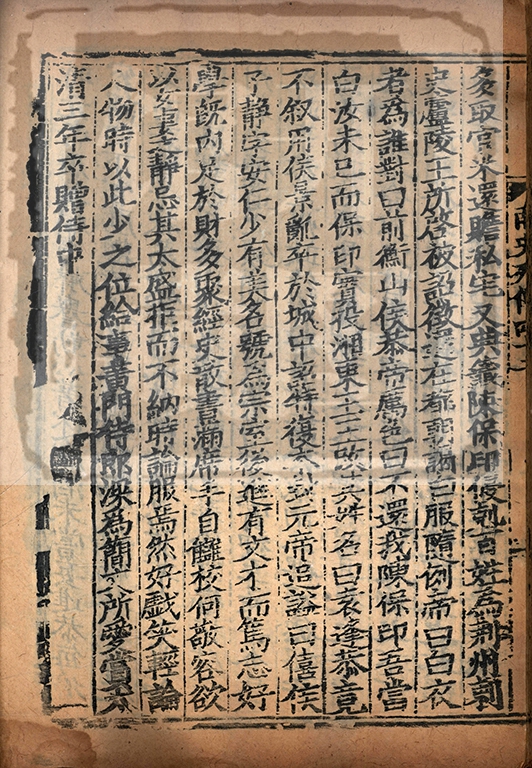 多取官米還贍私宅又典籖陳保印侵剋百姓爲荆州刺
史廬陵王所啓被詔徵還在都朝謁白服隨例帝曰白衣
者爲誰對曰前衡山侯恭帝厲色曰不還我陳保印吾當
白汝未已而保印實投湘東王王改其姓名曰袁逢恭竟
不叙用侯景亂卒於城中詔特復本封元帝追謚曰僖侯
子静字安仁少有美名號爲宗室後進有文才而篤志好
學既内足於財多聚經史散書滿席手自讎校何敬容欲
以女妻之静忌其太盛拒而不納時論服焉然好戲笑輕論
人物時以此少之位給事黄門侍郎深爲簡文所愛賞太
清三年卒贈侍中